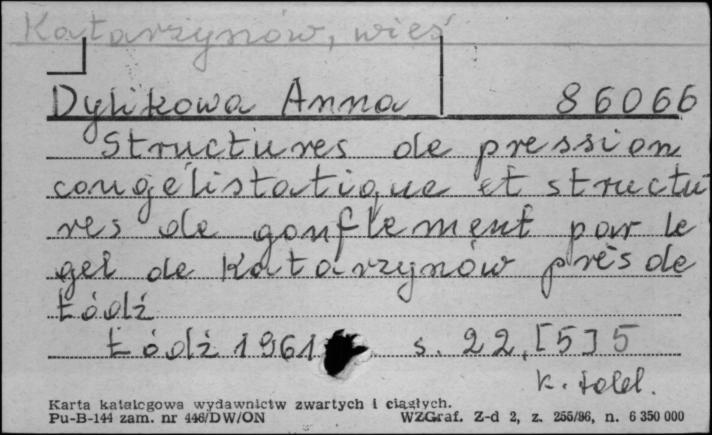 Katarzynów, wieś
Dylikowa Anna 86066
Structures de pression
congélistatique et structu
res de gonflement par le
gel de Katarzynów près de
Łódź
Łódź 1961 s. 22, [5] 5
k. tabl.
Karta katalogowa wydawnictw zwartych i ciągłych.
Pu-B-144 zam. nr 446/DW/ON WZGraf. Z-d 2, z. 255/86, n. 6 350 000